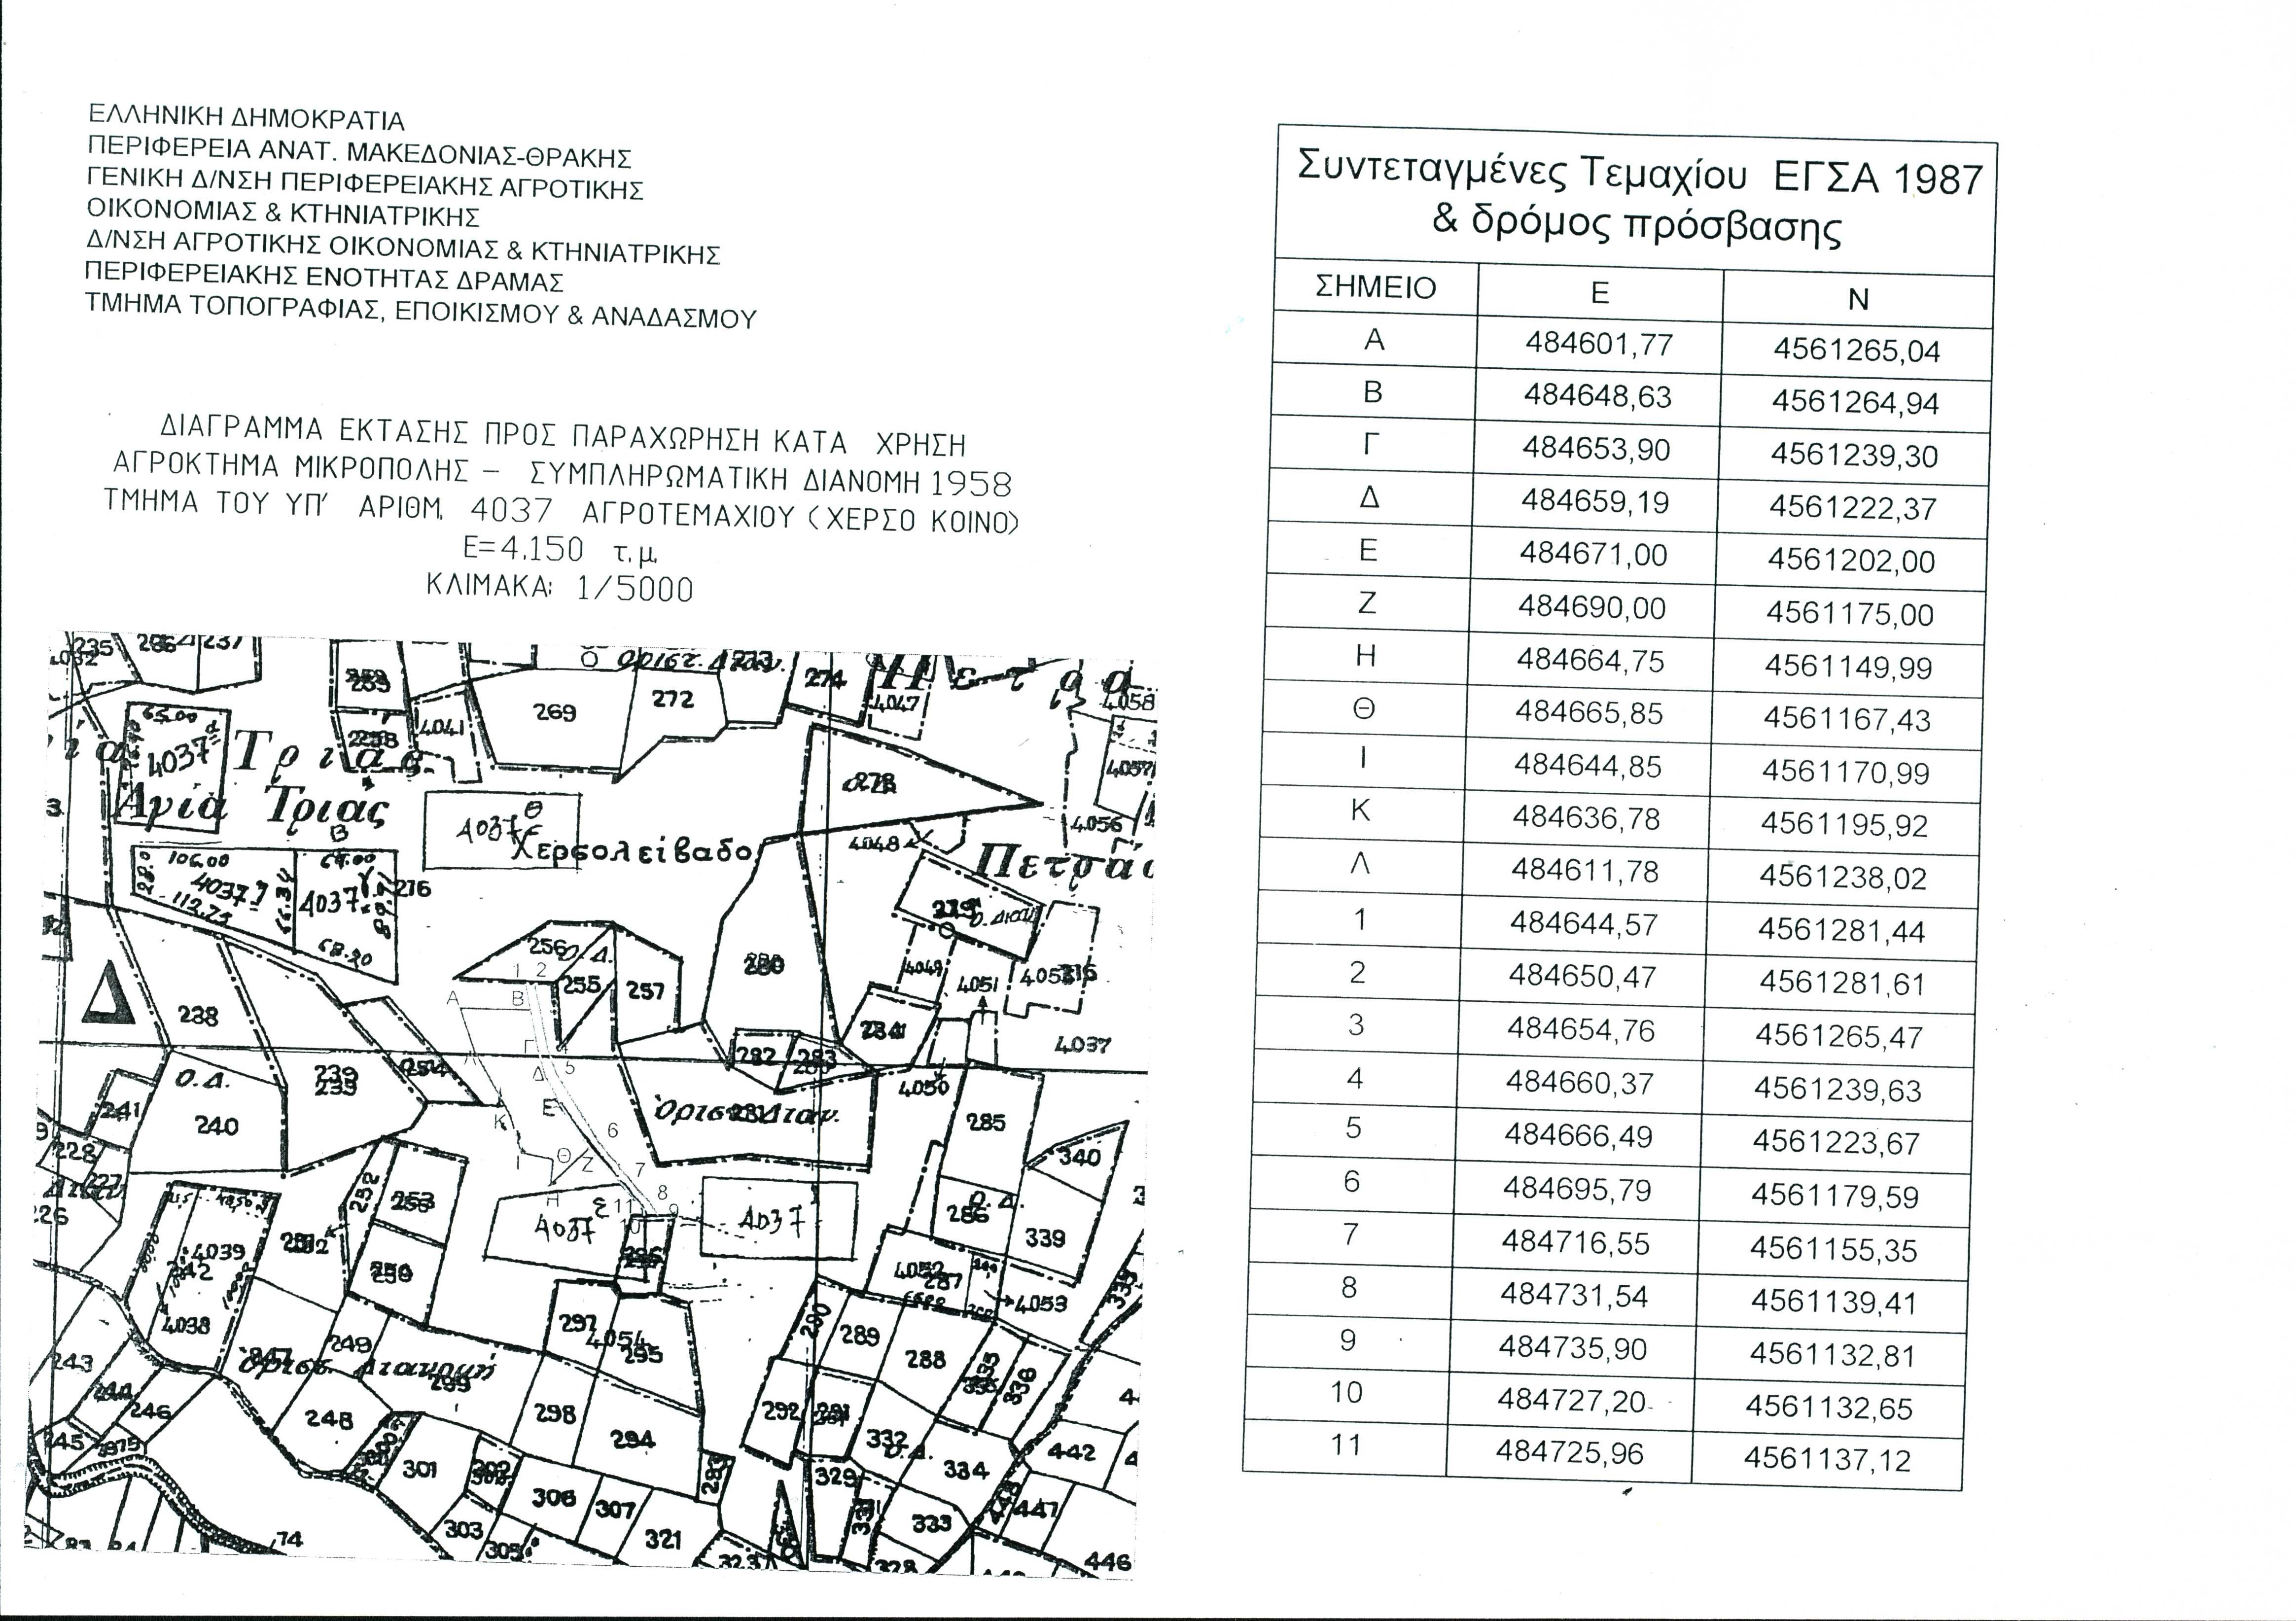 ΕΛΛΗΝΙΚΗ ΔΗΜΟΚΡΑΤΙΑ
ΠΕΡΙΦΕΡΕΙΑ ΑΝΑΤ. ΜΑΚΕΔΟΝΙΑΣ-ΘΡΑΚΗΣ
ΓΕΝΙΚΗ Δ/ΝΣΗ ΠΕΡΙΦΕΡΕΙΑΚΗΣ ΑΓΡΟΤΙΚΗΣ
ΟΙΚΟΝΟΜΙΑΣ & ΚΤΗΝΙΑΤΡΙΚΗΣ
Δ/ΝΣΗ ΑΓΡΟΤΙΚΗΣ ΟΙΚΟΝΟΜΙΑΣ & ΚΤΗΝΙΑΤΡΙΚΗΣ
ΠΕΡΙΦΕΡΕΙΑΚΗΣ ΕΝΟΤΗΤΑΣ ΔΡΑΜΑΣ
ΤΜΗΜΑ ΤΟΠΟΓΡΑΦΙΑΣ, ΕΠΟΙΚΙΣΜΟΥ & ΑΝΑΔΑΣΜΟΥ
ΔΙΑΓΡΑΜΜΑ ΕΚΤΑΣΗΣ ΠΡΟΣ ΠΑΡΑΧΩΡΗΣΗ ΚΑΤΑ ΧΡΗΣΗ
ΑΓΡΟΚΤΗΜΑ ΜΙΚΡΟΠΟΛΗΣ – ΣΥΜΠΛΗΡΩΜΑΤΙΚΗ ΔΙΑΝΟΜΗ 1958
ΤΜΗΜΑ ΤΟΥ ΥΠ' ΑΡΙΘΜ. 4037 ΑΓΡΟΤΕΜΑΧΙΟΥ (ΧΕΡΣΟ ΚΟΙΝΟ)
Ε=4.150 τ.μ.
ΚΛΙΜΑΚΑ: 1/5000
235 237
269 272 274 4047 4058
4041
65.00
4037
Τριάς
278
4057
Αγία Τριας
4037
Χερσολείβαδο
4048 4056
Πετσά
106.00 64.00
28.0 4037 66.34 4037 276
112.75 68.20
256 Ο.Δ.
1 2
255 257 280
4049 4051
Α Β
238 284
4037
Γ 282 283
Ο.Δ. 239 5 4050
Δ
241 240 Ε 285
Κ 6
228 340
Ι Θ Ζ 7
227
252 253 Η 8
226 4037 ε 11 9 4037 286 Ο.Δ.
10 339
4039
242 250 4052 287
4053
4038 249 297 4054 295 290 289 288
243 336
244 246 248 298 294 292 332
245 301 306 307 329 334 442
303 321 333 447
305 74 323 328 446
Συντεταγμένες Τεμαχίου ΕΓΣΑ 1987
& δρόμος πρόσβασης
ΣΗΜΕΙΟ Ε Ν
Α 484601,77 4561265,04
Β 484648,63 4561264,94
Γ 484653,90 4561239,30
Δ 484659,19 4561222,37
Ε 484671,00 4561202,00
Ζ 484690,00 4561175,00
Η 484664,75 4561149,99
Θ 484665,85 4561167,43
Ι 484644,85 4561170,99
Κ 484636,78 4561195,92
Λ 484611,78 4561238,02
1 484644,57 4561281,44
2 484650,47 4561281,61
3 484654,76 4561265,47
4 484660,37 4561239,63
5 484666,49 4561223,67
6 484695,79 4561179,59
7 484716,55 4561155,35
8 484731,54 4561139,41
9 484735,90 4561132,81
10 484727,20 4561132,65
11 484725,96 4561137,12